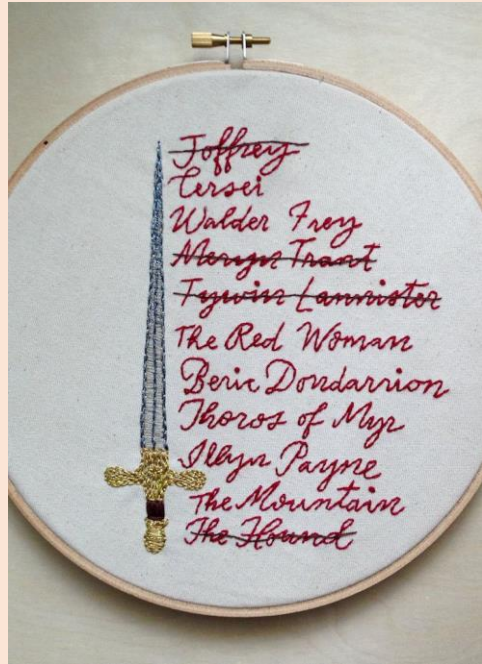 Joffrey
Cersei
Walder Frey
Meryn Trant
Tywin Lannister
The Red Woman
Beric Dondarrion
Thoros of Myr
Illyn Payne
The Mountain
The Hound